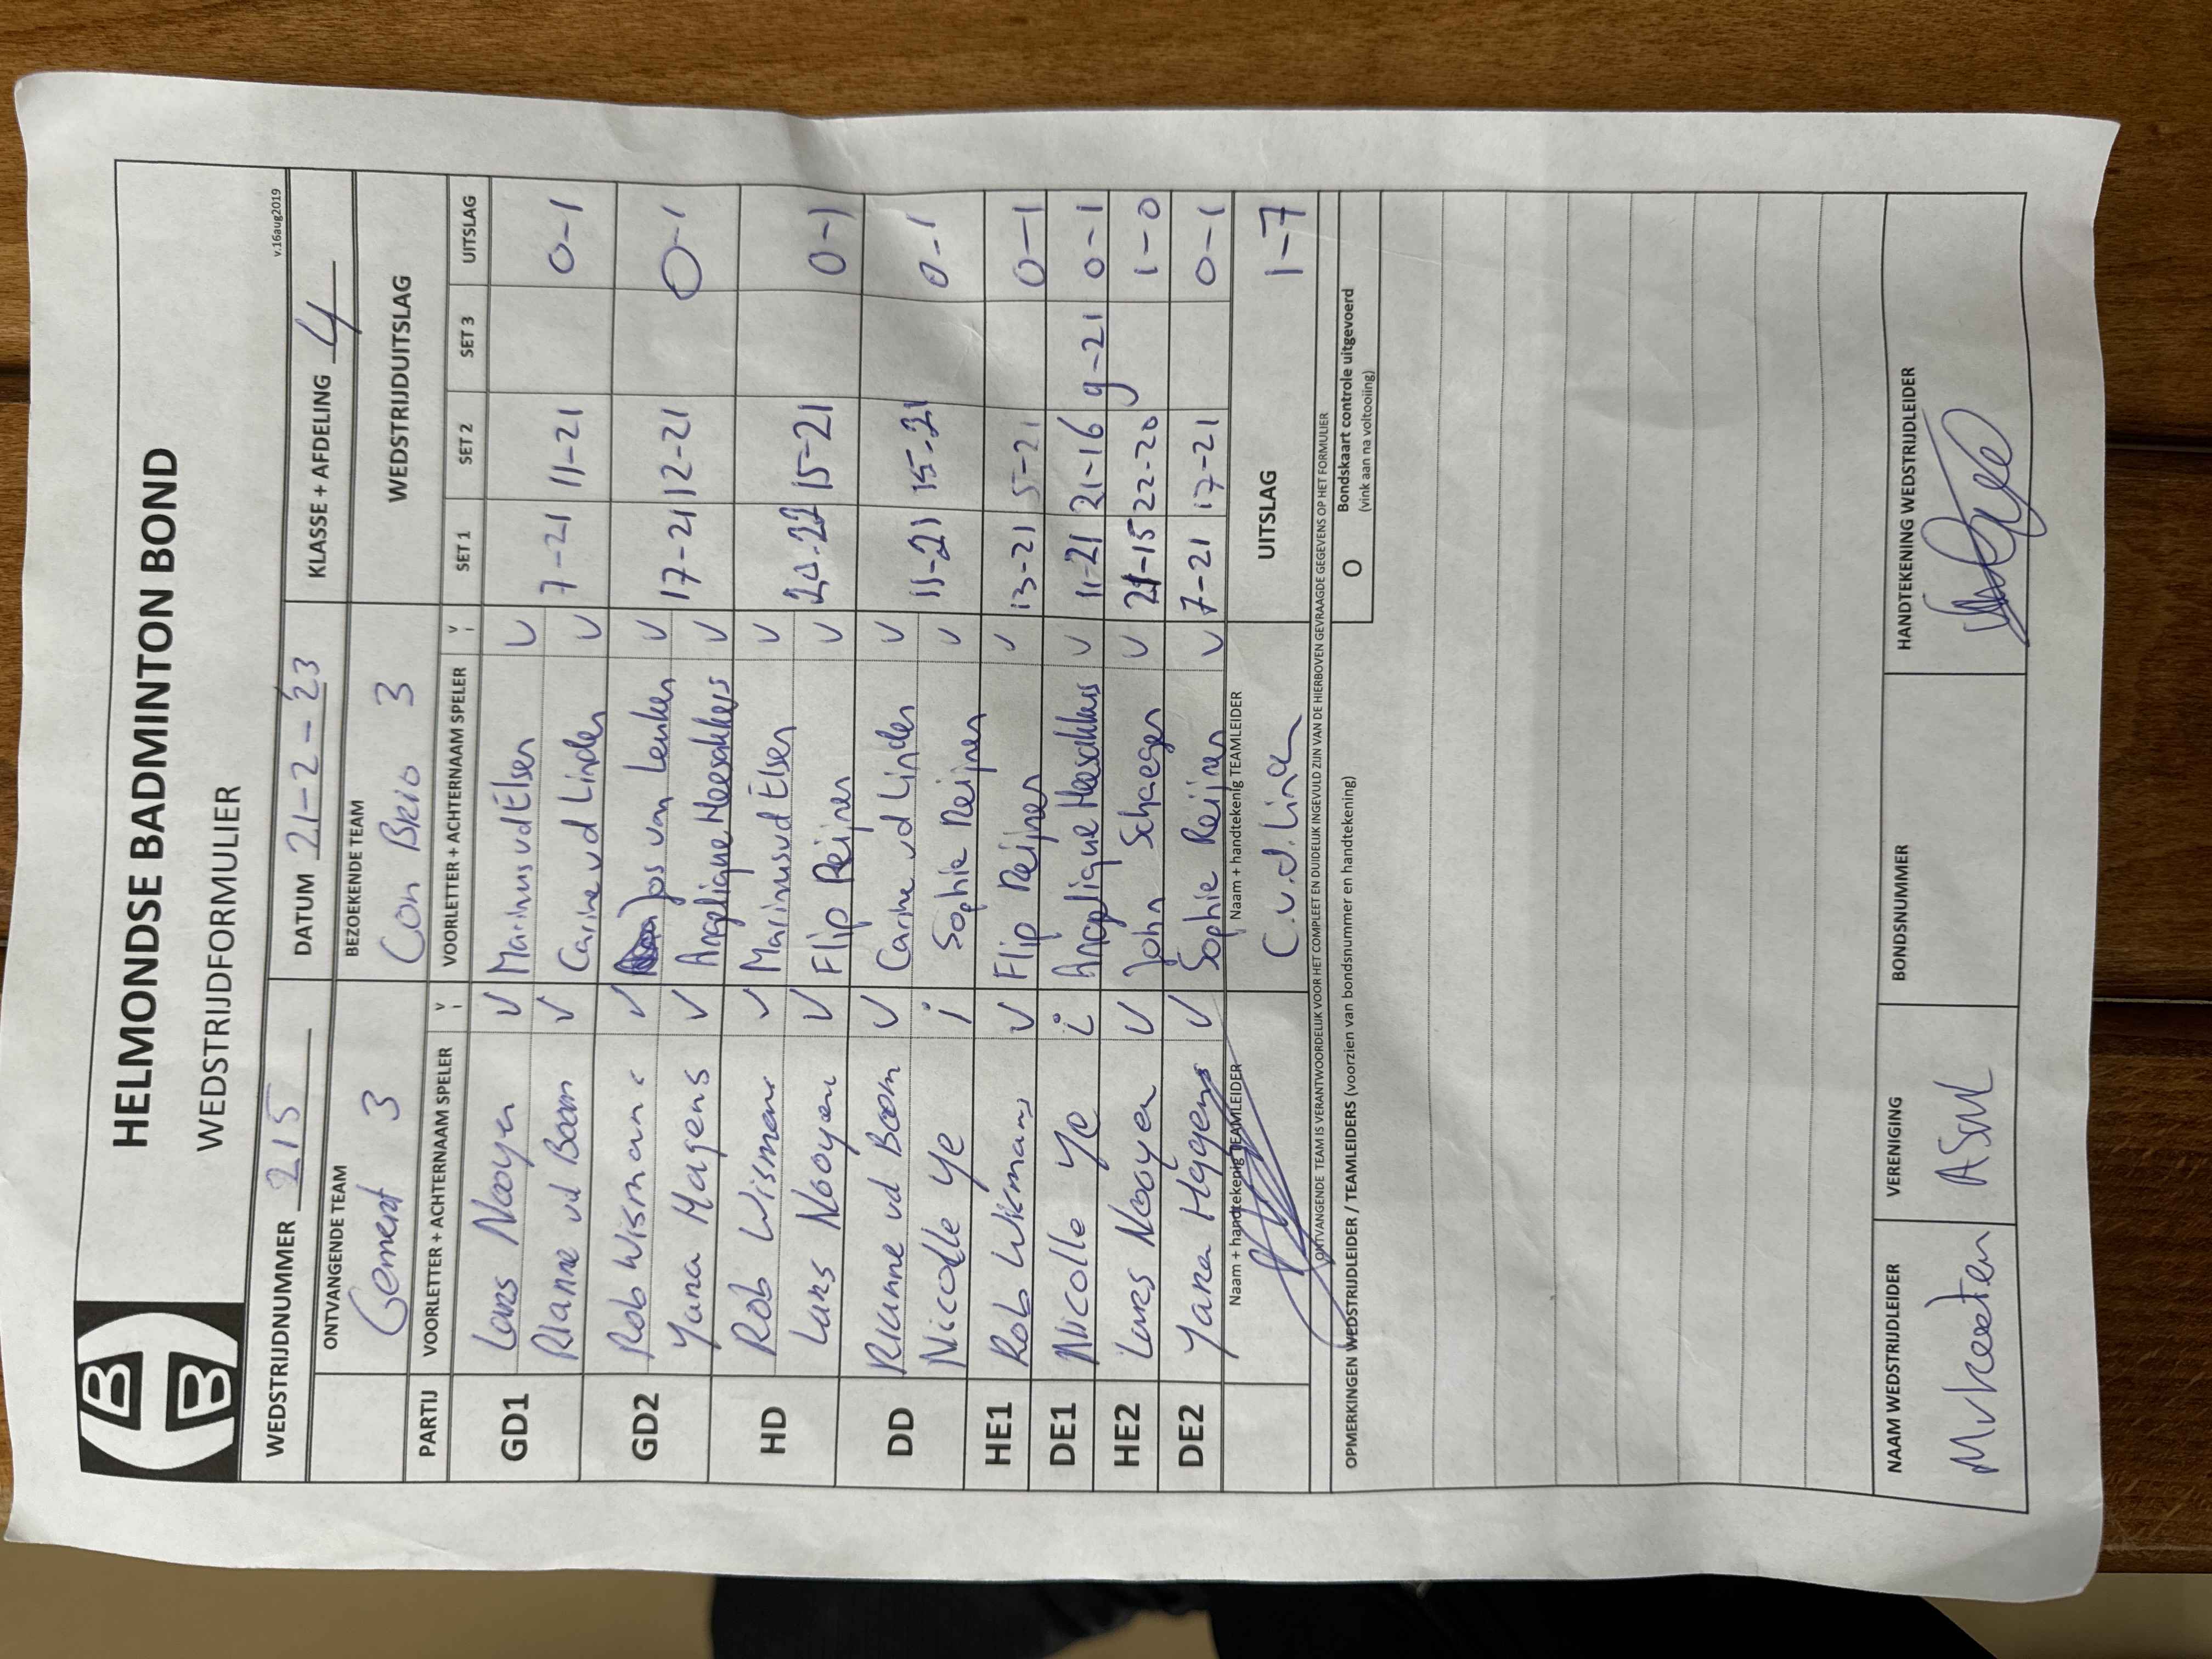 HELMONDSE BADMINTON BOND
WEDSTRIJDFORMULIER
v.16aug2019
WEDSTRIJDNUMMER 215 DATUM 21-2-'23 KLASSE + AFDELING 4
ONTVANGENDE TEAM BEZOEKENDE TEAM WEDSTRIJDUITSLAG
Gemert 3 Con Brio 3
PARTIJ VOORLETTER + ACHTERNAAM SPELER V VOORLETTER + ACHTERNAAM SPELER V SET 1 SET 2 SET 3 UITSLAG
GD1 Lars Nooyen V Marinus vd Elsen V
Rianne vd Boom V Carine vd Linden V 7-21 11-21 0-1
GD2 Rob Wismans V Jos van Leuken V
Yana Hagens V Angelique Heesakkers V 17-21 12-21 0-1
HD Rob Wismans V Marinus vd Elsen V
Lars Nooyen V Flip Reijnen V 20-22 15-21 0-1
DD Rianne vd Boom V Carine vd Linden V
Nicolle Ye i Sophie Reijnen V 11-21 15-21 0-1
HE1 Rob Wismans V Flip Reijnen V 13-21 5-21 0-1
DE1 Nicolle Ye i Angelique Heesakkers V 11-21 21-16 9-21 0-1
HE2 Lars Nooyen V John Schaegen V 21-15 22-20 1-0
DE2 Yana Hagens V Sophie Reijnen V 7-21 17-21 0-1
Naam + handtekenig TEAMLEIDER Naam + handtekenig TEAMLEIDER
C.v.d.Linden UITSLAG 1-7
ONTVANGENDE TEAM IS VERANTWOORDELIJK VOOR HET COMPLEET EN DUIDELIJK INGEVULD ZIJN VAN DE HIERBOVEN GEVRAAGDE GEGEVENS OP HET FORMULIER
OPMERKINGEN WEDSTRIJDLEIDER / TEAMLEIDERS (voorzien van bondsnummer en handtekening)
O Bondskaart controle uitgevoerd
(vink aan na voltooiing)
NAAM WEDSTRIJDLEIDER VERENIGING BONDSNUMMER HANDTEKENING WEDSTRIJDLEIDER
BB